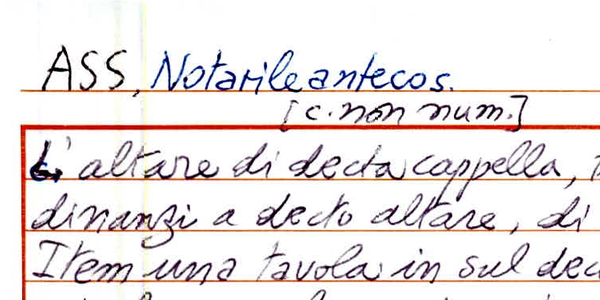 ASS, Notarile antecos.
[c. non num.]
L' altare di decta cappella,
dinanzi a decto altare, di
Item una tavola in sul dec